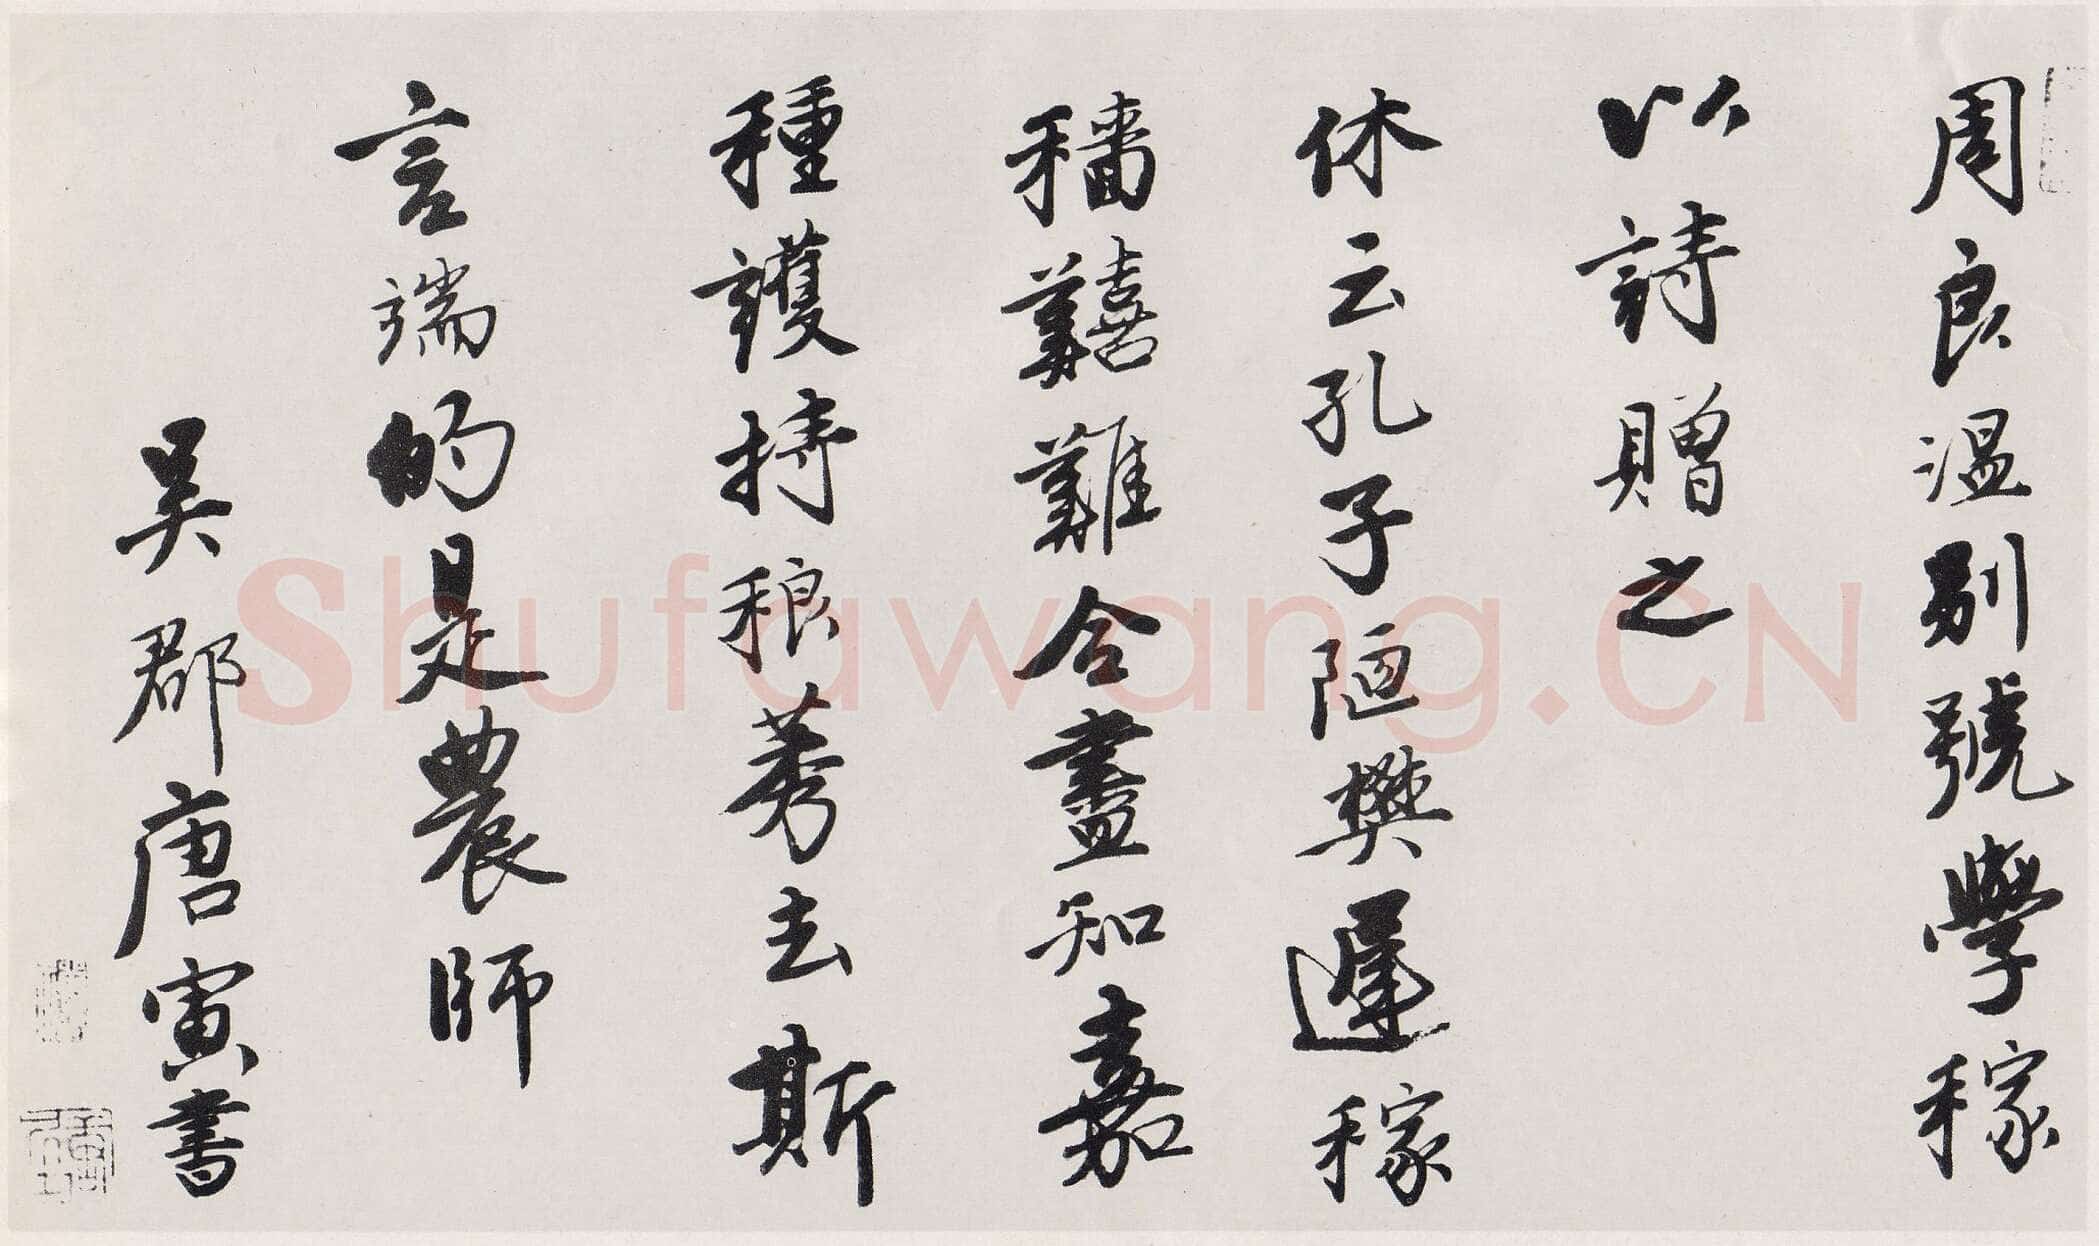 周良溫別號學稼
以詩贈之
休云孔子陋樊遲稼
穡囏難合盡知嘉
種護持稂莠去斯
言端的是農師
吳郡唐寅書
Shufawang.CN